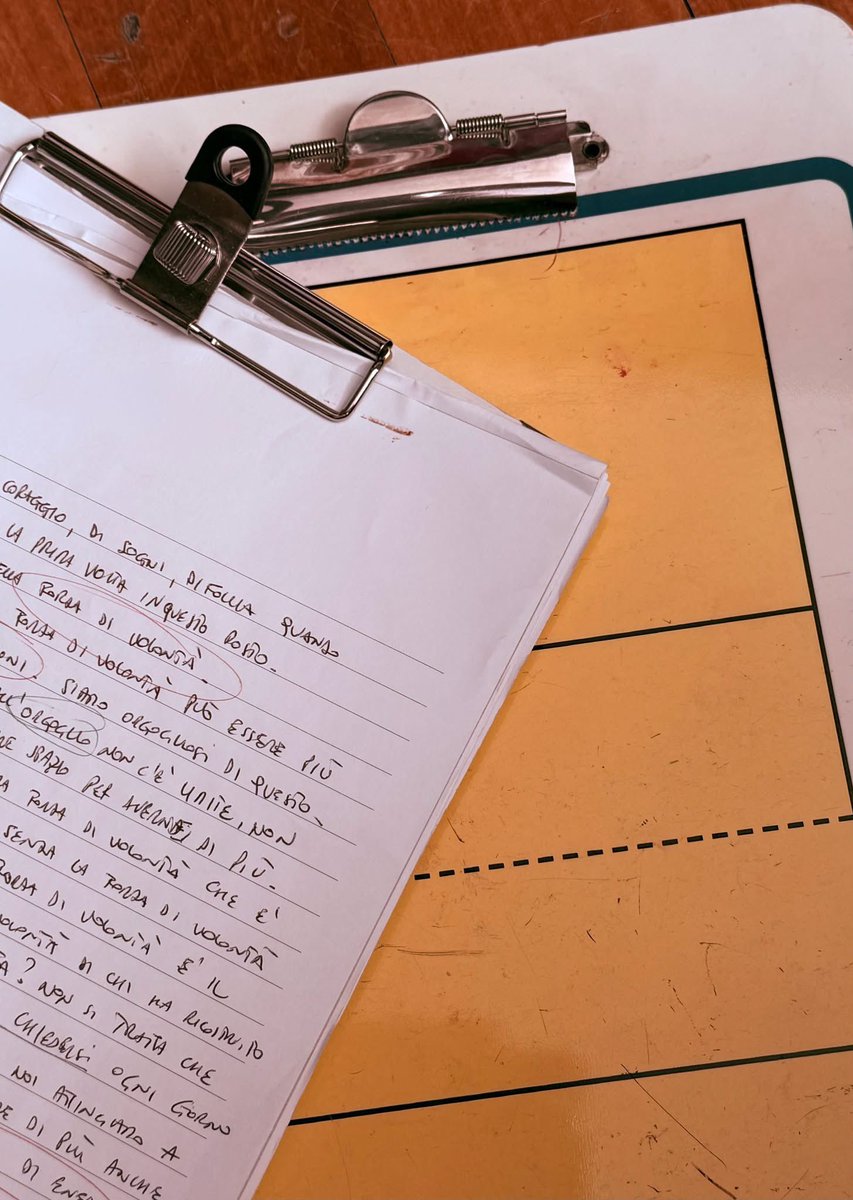 CORAGGIO, DI SOGNI, DI FOLLIA QUANDO
LA PRIMA VOLTA IN QUESTO POSTO.
FORZA DI VOLONTÀ.
FORZA DI VOLONTÀ PUÒ ESSERE PIÙ
SIAMO ORGOGLIOSI DI QUESTO.
ORGOGLIO NON C'È LIMITE, NON
SPAZIO PER AVERNE DI PIÙ.
FORZA DI VOLONTÀ CHE È
SENZA LA FORZA DI VOLONTÀ
FORZA DI VOLONTÀ E' IL
VOLONTÀ DI CHI HA
? NON SI TRATTA CHE
CHIEDERSI OGNI GIORNO
NOI ATTINGIAMO A
DI PIÙ ANCHE
DI